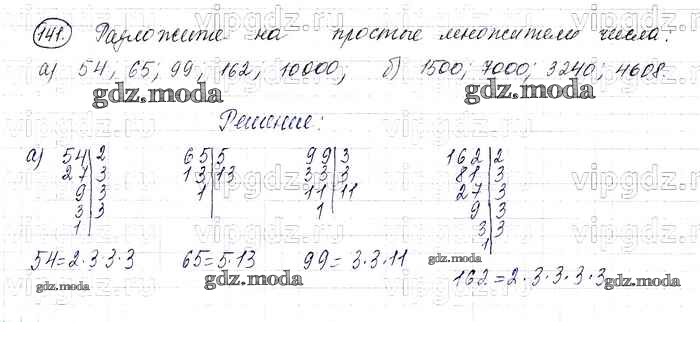 141. Разложите на простые множители числа:
а) 54; 65; 99; 162; 10000; б) 1500; 7000; 3240; 4608.
gdz.moda gdz.moda
Решение:
а) 54|2 65|5 99|3 162|2
27|3 13|13 33|3 81|3
9|3 1| 11|11 27|3
3|3 1| 9|3
1| 3|3
1|
54=2·3·3·3 65=5·13 99=3·3·11 gdz.moda
162=2·3·3·3·3
gdz.moda gdz.moda gdz.moda
vipgdz.ru